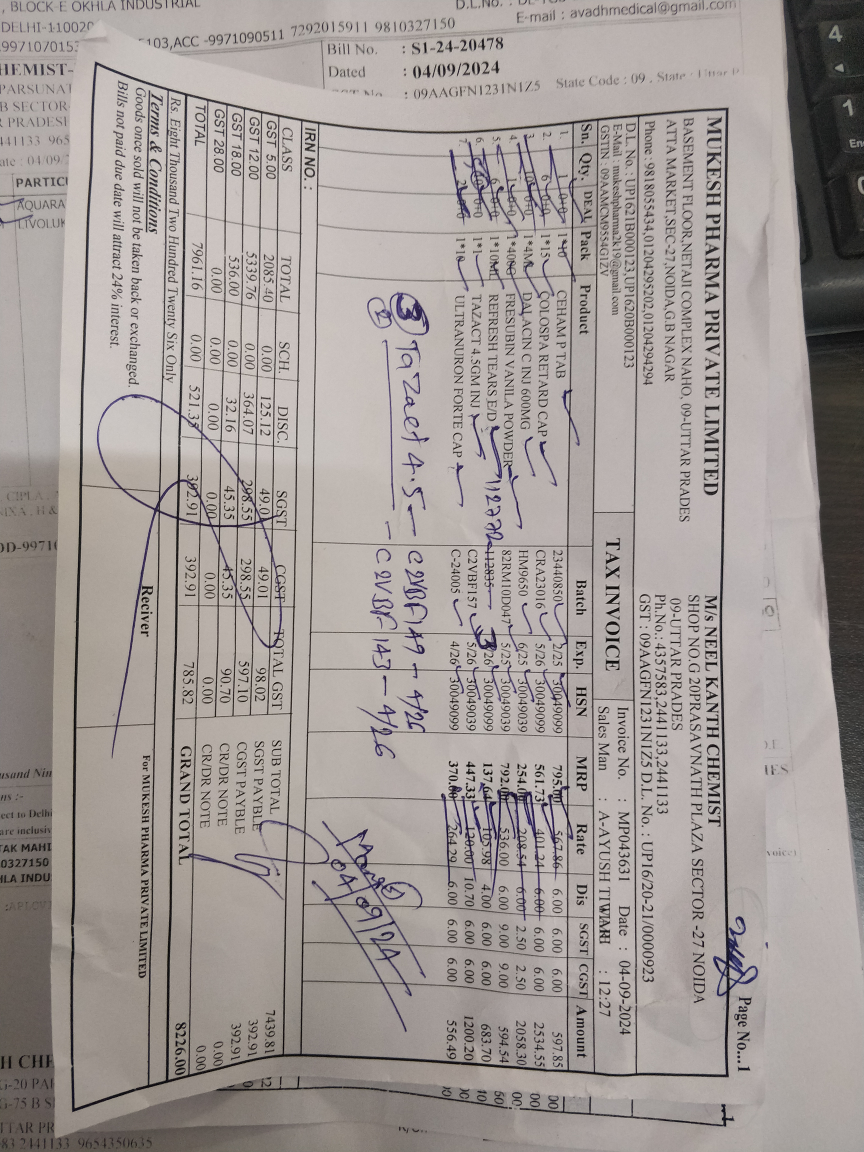 , BLOCK-E OKHLA INDUSTRIAL
DELHI-11002
103,ACC -9971090511 7292015911 9810327150
E-mail : avadhmedical@gmail.com
Bill No. : S1-24-20478
Dated : 04/09/2024
: 09AAGFN1231N1Z5 State Code : 09 , State :
PARTICU
AQUARA
LIVOLUK
Page No...1
MUKESH PHARMA PRIVATE LIMITED
BASEMENT FLOOR,NETAJI COMPLEX NAHO, 09-UTTAR PRADES
ATTA MARKET,SEC-27,NOIDA,G.B NAGAR
Phone : 9818055434,01204295202,01204294294
D.L. No. : UP1621B000123,UP1620B000123
E-Mail : mukeshpharma2k19@gmail.com
GSTIN : 09AAMCM9554G1ZV
M/s NEEL KANTH CHEMIST
SHOP NO.G 20PRASAVNATH PLAZA SECTOR -27 NOIDA
09-UTTAR PRADES
Ph.No.: 4357583,2441133,2441133
GST : 09AAGFN1231N1Z5 D.L. No. : UP16/20-21/0000923
TAX INVOICE
Invoice No. : MP043631 Date : 04-09-2024
Sales Man : A-AYUSH TIWARI : 12:27
Sn. Qty. DEAL Pack Product Batch Exp. HSN MRP Rate Dis SGST CGST Amount
1. 1*10 CEHAM P TAB 23440850 2/25 30049099 795.00 567.86 6.00 6.00 6.00 597.85
2. 1*15 COLOSPA RETARD CAP CRA23016 5/26 30049099 561.73 401.24 6.00 6.00 6.00 2534.55
3. 1*4ML DALACIN C INJ 600MG HM9650 6/25 30049039 254.00 208.54 6.00 2.50 2.50 2058.30
4. 1*400G FRESUBIN VANILA POWDER 82RM10D047 5/25 30049039 792.00 536.00 6.00 9.00 9.00 594.54
5. 1*10ML REFRESH TEARS E/D 112772 112835 3/26 30049099 137.64 105.98 4.00 6.00 6.00 683.70
6. 1*1 TAZACT 4.5GM INJ C2VBF157 5/26 30049039 447.33 120.00 10.70 6.00 6.00 1200.20
7. 1*10 ULTRANURON FORTE CAP C-24005 4/26 30049099 370.00 264.29 6.00 6.00 6.00 556.49
③ Tazact 4.5 - C2VBF149 - 4/26
② - C2VBF143 - 4/26
04/09/24
IRN NO. :
CLASS TOTAL SCH. DISC. SGST CGST TOTAL GST
GST 5.00 2085.40 0.00 125.12 49.01 49.01 98.02
GST 12.00 5339.76 0.00 364.07 298.55 298.55 597.10
GST 18.00 536.00 0.00 32.16 45.35 45.35 90.70
GST 28.00 0.00 0.00 0.00 0.00 0.00 0.00
TOTAL 7961.16 0.00 521.35 392.91 392.91 785.82
SUB TOTAL 7439.81
SGST PAYBLE 392.91
CGST PAYBLE 392.91
CR/DR NOTE 0.00
CR/DR NOTE 0.00
GRAND TOTAL 8226.00
Rs. Eight Thousand Two Hundred Twenty Six Only
Terms & Conditions
Goods once sold will not be taken back or exchanged.
Bills not paid due date will attract 24% interest.
Reciver
For MUKESH PHARMA PRIVATE LIMITED
83 2441133 9654350635